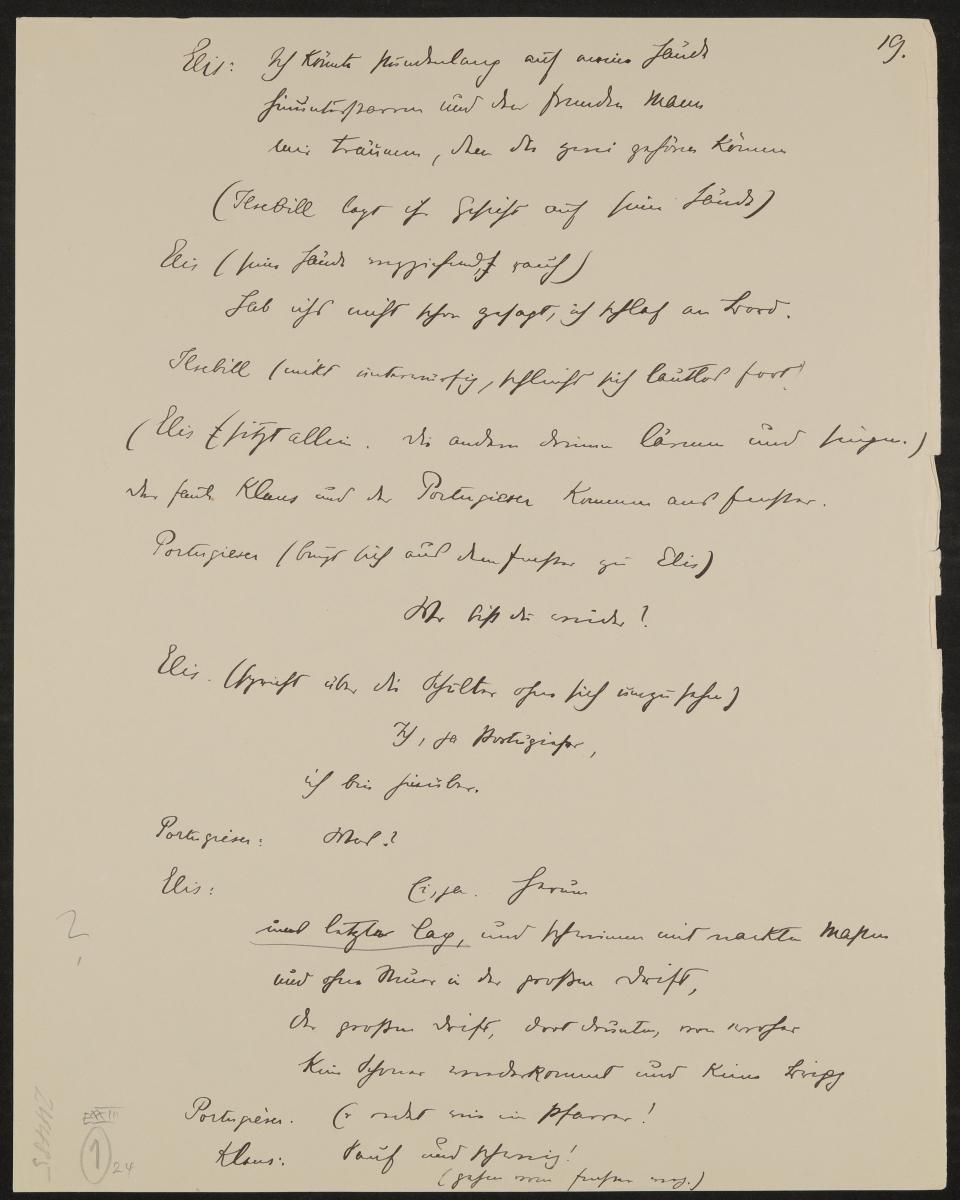 19.
Elis: Ich könnte stundenlang auf meine Hände
hinunterstarren und den fremden Mann
mir träumen, dem die zwei gehören können
(Ilsebill legt ihr Gesicht auf seine Hände)
Elis (seine Hände wegziehend, rauh)
Hab ichs nicht schon gesagt, ich schlaf an Bord.
Ilsebill (nickt unterwürfig, schleicht sich lautlos fort)
(Elis sitzt allein. Die andern drinnen lärmen und singen.)
Der Klaus und der Portugieser kommen ans Fenster.
Portugieser (beugt sich aus dem Fenster zu Elis)
Wo bist du wieder?
Elis. (spricht über die Schulter ohne sich umzusehn)
Ich, ja Portugieser,
ich bin hinüber.
Portugieser: Was?
Elis: Ei, ja. Herum
ums letzte Cap, und schwimm mit nackten Masten
und ohne Steuer in der großen Drift,
der großen Drift, dort drunten, von woher
kein Schoner wiederkommt und keine Brigg
Portugieser. Er redet wie ein Pfarrer!
Klaus: Sauf und schweig!
(gehen vom Fenster weg.)
?
1
24